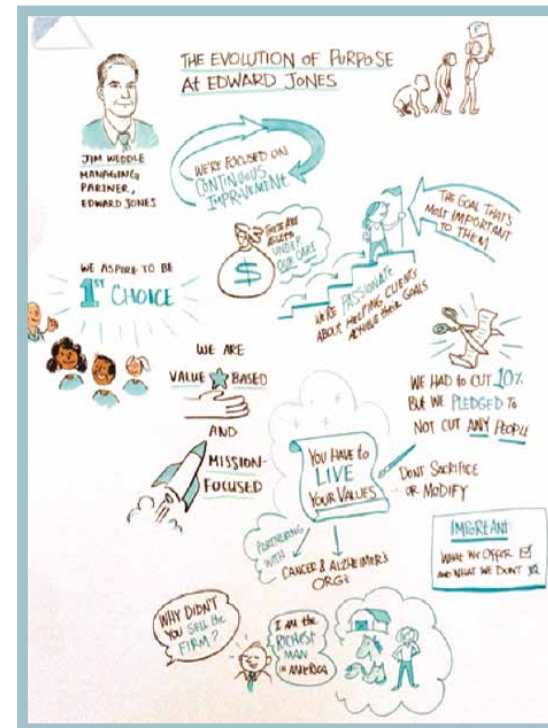 THE EVOLUTION OF PURPOSE
At EDWARD JONES
JIM WEDDLE
MANAGING
PARTNER,
EDWARD JONES
WE'RE FOCUSED ON
CONTINUOUS
IMPROVEMENT
THESE ARE
ASSETS
UNDER
OUR CARE
$
THE GOAL THAT'S
MOST IMPORTANT
TO THEM
WE'RE PASSIONATE
ABOUT HELPING CLIENTS
ACHIEVE their GOALS
WE ASPIRE TO BE
1ST CHOICE
WE ARE
VALUE BASED
AND
MISSION-
FOCUSED
WE HAD to CUT 10%
BUT WE PLEDGED TO
NOT CUT ANY PEOPLE
YOU HAVE to
LIVE
YOUR VALUES
DON'T SACRIFICE
OR MODIFY
PARTNERING
WITH
CANCER & ALZHEIMER'S
ORG'S
IMPORTANT
WHAT WE OFFER
AND WHAT WE DON'T
WHY DIDN'T
YOU SELL the
FIRM?
I AM the
RICHEST
MAN
IN AMERICA